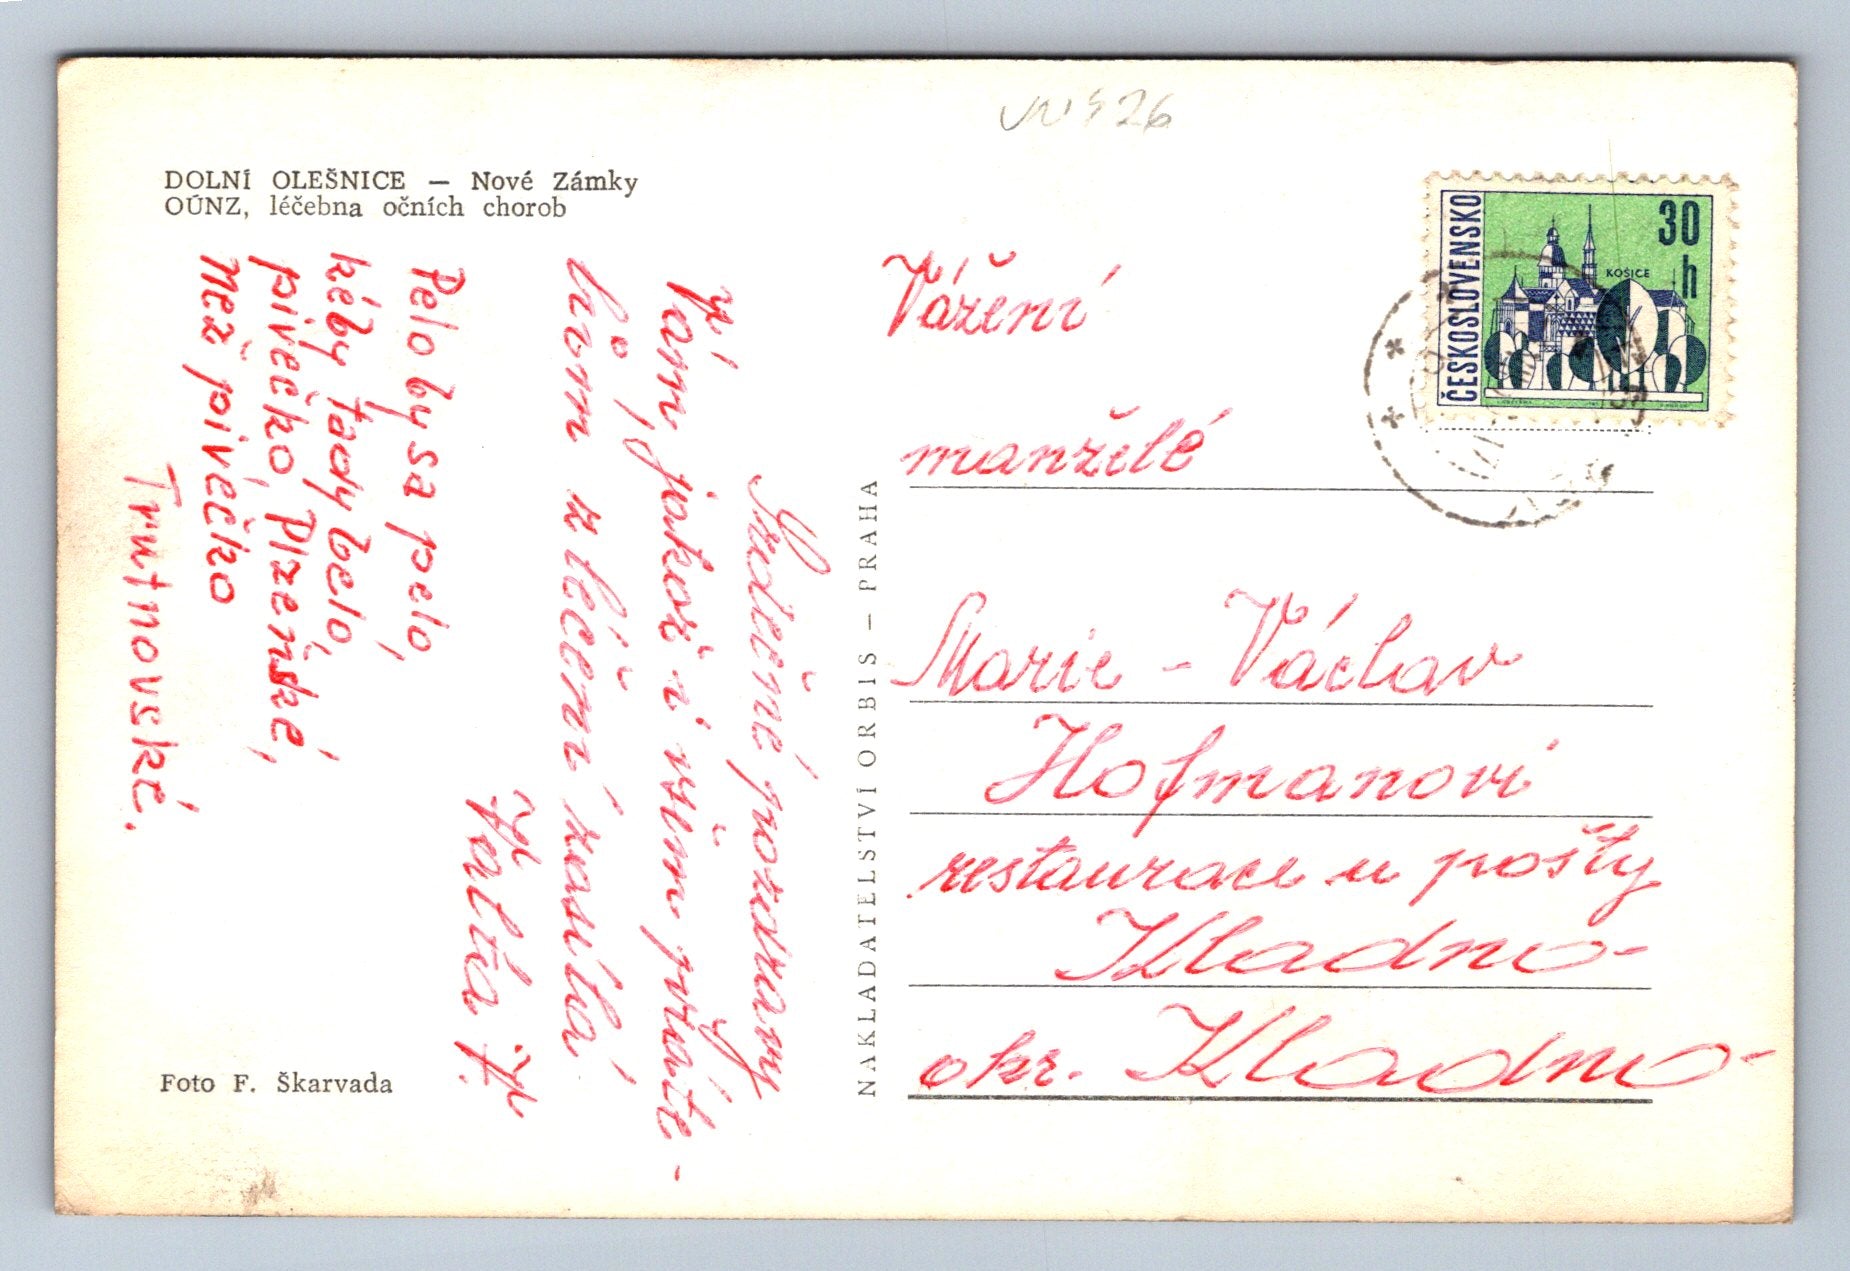 DOLNÍ OLEŠNICE — Nové Zámky
OÚNZ, léčebna očních chorob
Srdečné pozdravy
Vám jakož i všem přáte-
lům z léčení zasílá
Valta J.
Pelo by sa pelo,
kéby tady belo,
pivečko Plzeňské,
než pivečko
Trutnovské.
Foto F. Škarvada
NAKLADATELSTVÍ ORBIS — PRAHA
26
ČESKOSLOVENSKO
30
h
KOŠICE
Vážení
manželé
Marie - Václav
Hofmanovi
restaurace u pošty
Kladno-
okr. Kladno-